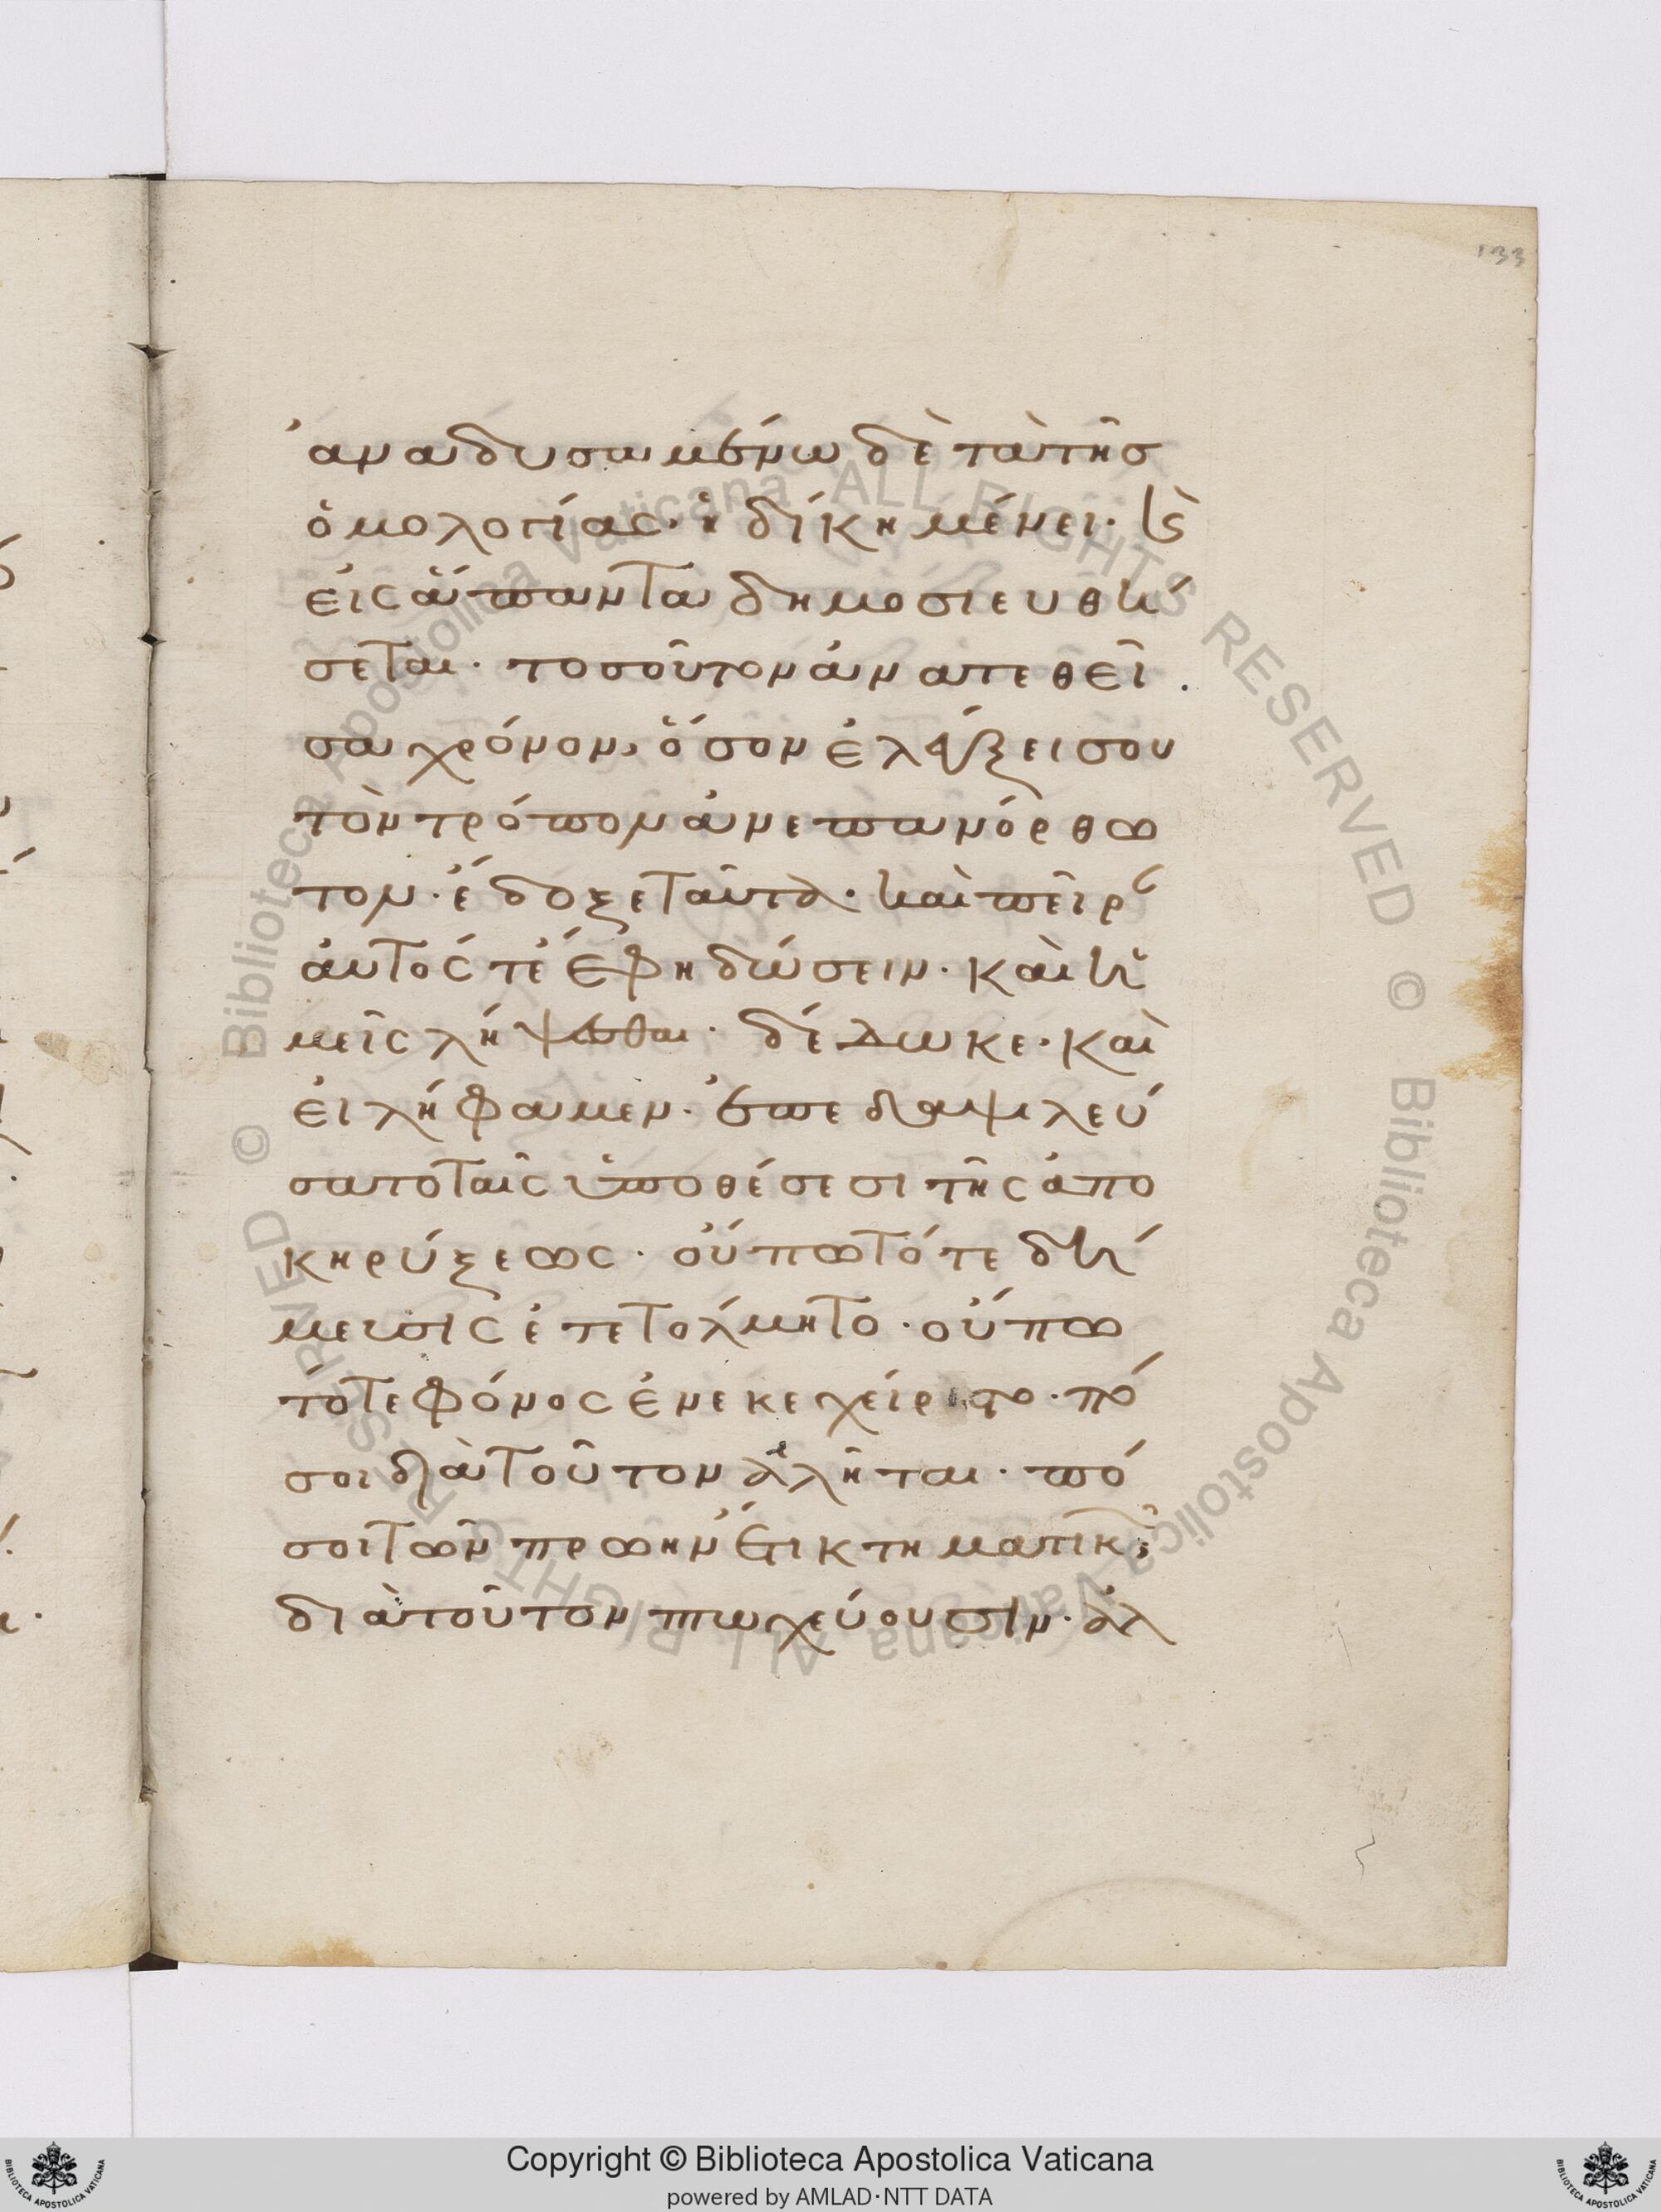 133
ἀναδυσαμένω δὲ τὰ τῆσ
ὁμολογίας· ἡ δίκη μένει· κ(αὶ)
εἰς ἅπαντα δημοσιευθή
σεται· τοσοῦτον ἀναπεθεῖ
σα χρόνον, ὅσον ἐλέγξει σου
τὸν τρόπον ἀνεπανόρθω
τον· ἔδοξε ταῦτα· καὶ πεῖραν
αὐτός τέ ἔφη δώσειν· καὶ ἡ
μεῖς λήψεσθαι· δέδωκε· καὶ
εἰλήφαμεν· ἐπεδαψιλεύ
σατο ταῖς ὑποθέσεσι τῆς ἀπο
κηρύξεως· οὔπω τότε δή
μευσις ἐτετόλμητο· οὔπω
τότε φόνος ἐνεκεχείριστο· πό
σοι διὰ τοῦτον ἀλῆται· πό
σοι τῶν πρώην ἔτι κτηματικῶν
διὰ τοῦτον πτωχεύουσιν· ἀλ
Copyright © Biblioteca Apostolica Vaticana
powered by AMLAD·NTT DATA